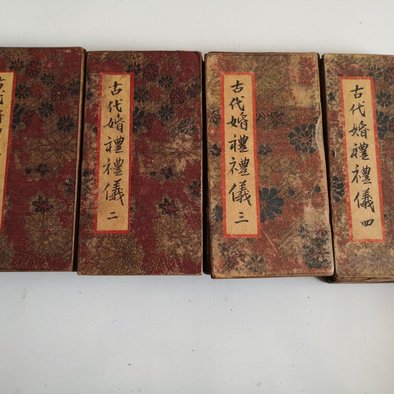 古代婚
古代婚禮禮儀 二
古代婚禮禮儀 三
古代婚禮禮儀 四